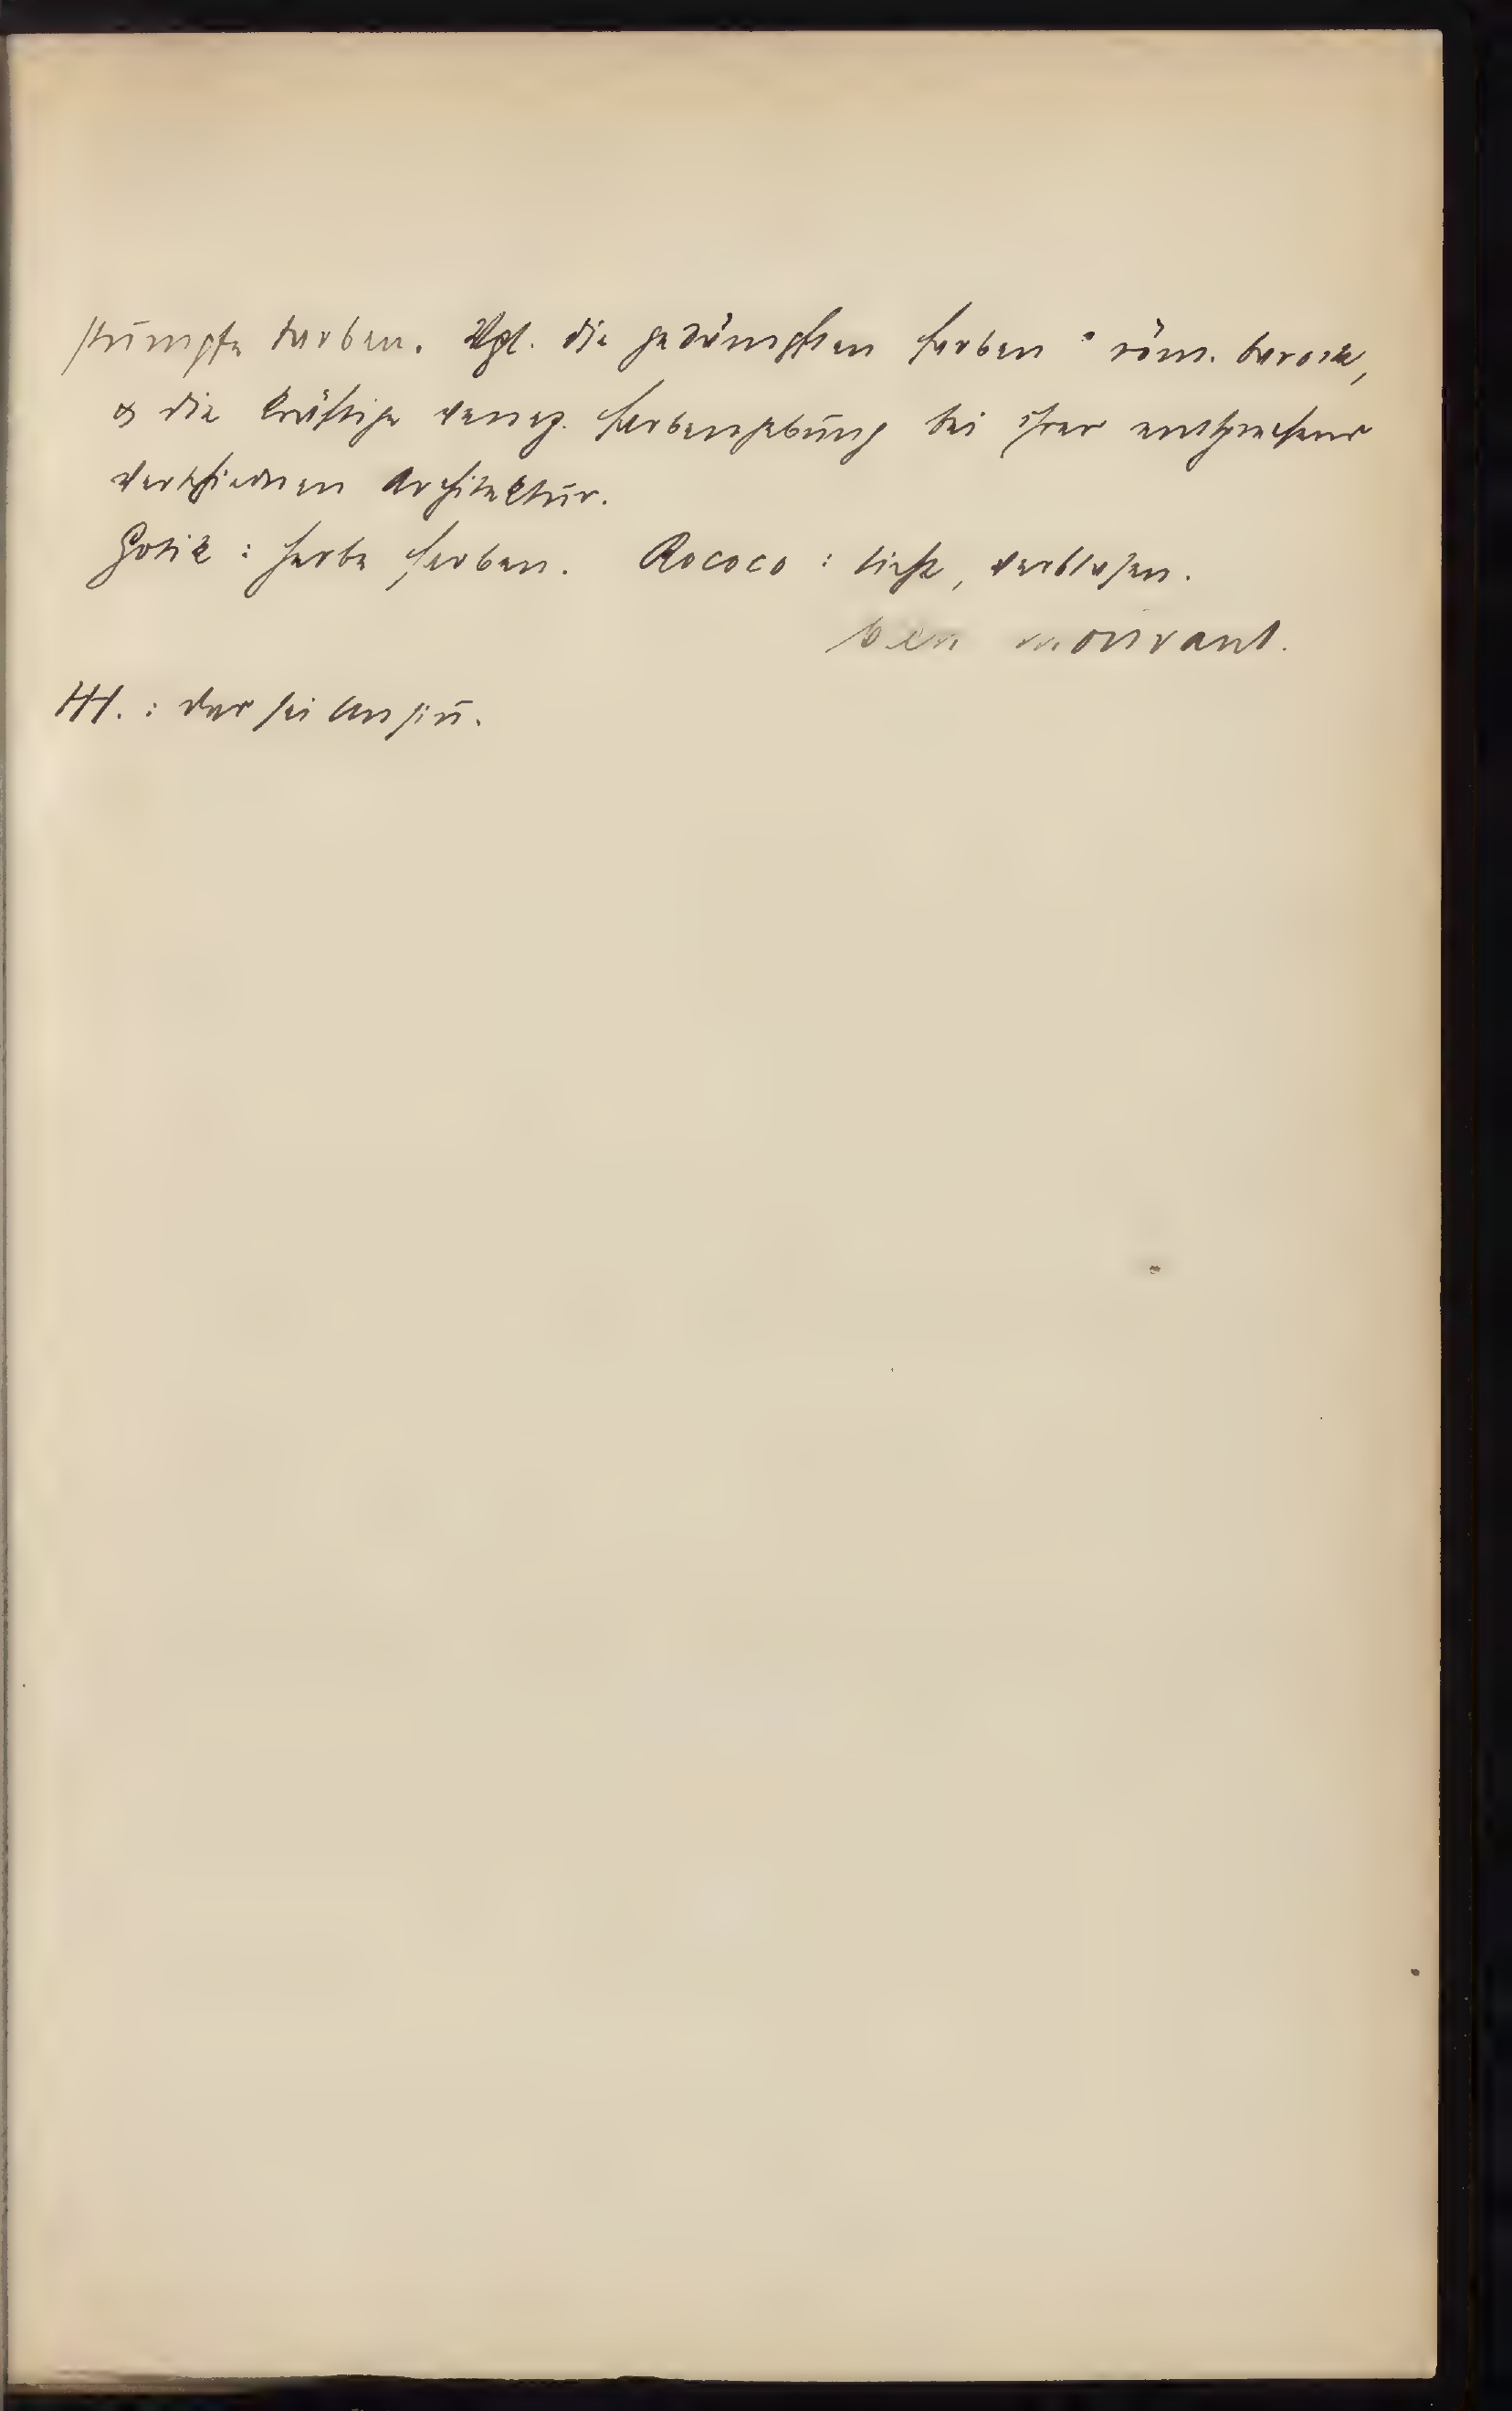 stumpfe Farben. Vgl. die gedämpften Farben ° röm. barock,
& die kräftige venez. Farbengebung bei ihrer entsprechend
verschiednen Architektur.
Gotik : herbe Farben. Rococo : licht, verblasen.
bleu mourant.
HH. : der sei